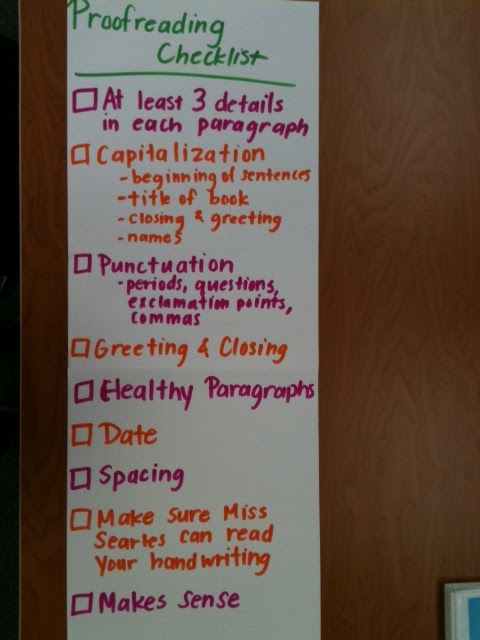 Proofreading
Checklist
At least 3 details
in each paragraph
Capitalization
- beginning of sentences
- title of book
- closing & greeting
- names
Punctuation
- periods, questions,
exclamation points,
commas
Greeting & Closing
Healthy Paragraphs
Date
Spacing
Make Sure Miss
Searles can read
Your handwriting
Makes Sense